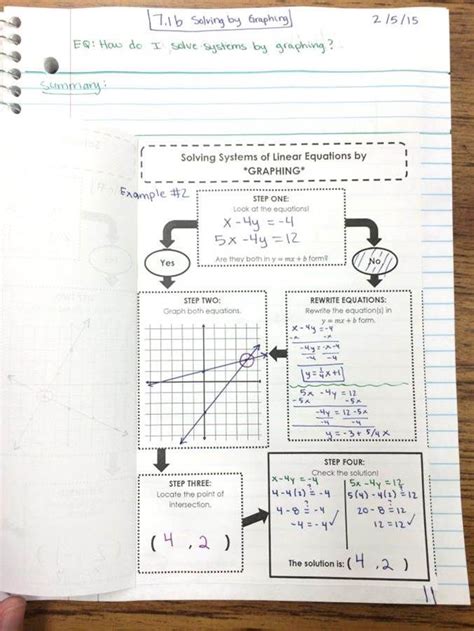 7.1b Solving by Graphing
2/5/15
EQ: How do I solve systems by graphing?
Summary:
Solving Systems of Linear Equations by
*GRAPHING*
Example #2
STEP ONE:
Look at the equations!
x - 4y = -4
5x - 4y = 12
Are they both in y = mx + b form?
Yes
No
STEP TWO:
Graph both equations.
REWRITE EQUATIONS:
Rewrite the equation(s) in
y = mx + b form.
x - 4y = -4
-x -x
-4y = -x - 4
-4 -4
y = 1/4 x + 1
5x - 4y = 12
-5x -5x
-4y = 12 - 5x
-4 -4
y = -3 + 5/4 x
STEP THREE:
Locate the point of
intersection.
( 4 , 2 )
STEP FOUR:
Check the solution!
x - 4y = -4
4 - 4(2) ≟ -4
4 - 8 ≟ -4
-4 = -4 ✓
5x - 4y = 12
5(4) - 4(2) ≟ 12
20 - 8 ≟ 12
12 = 12 ✓
The solution is: ( 4 , 2 )